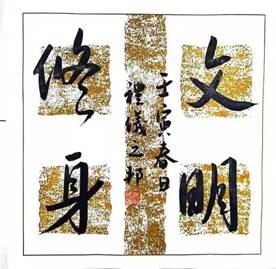 文明
修身
壬寅春日
礼仪之邦